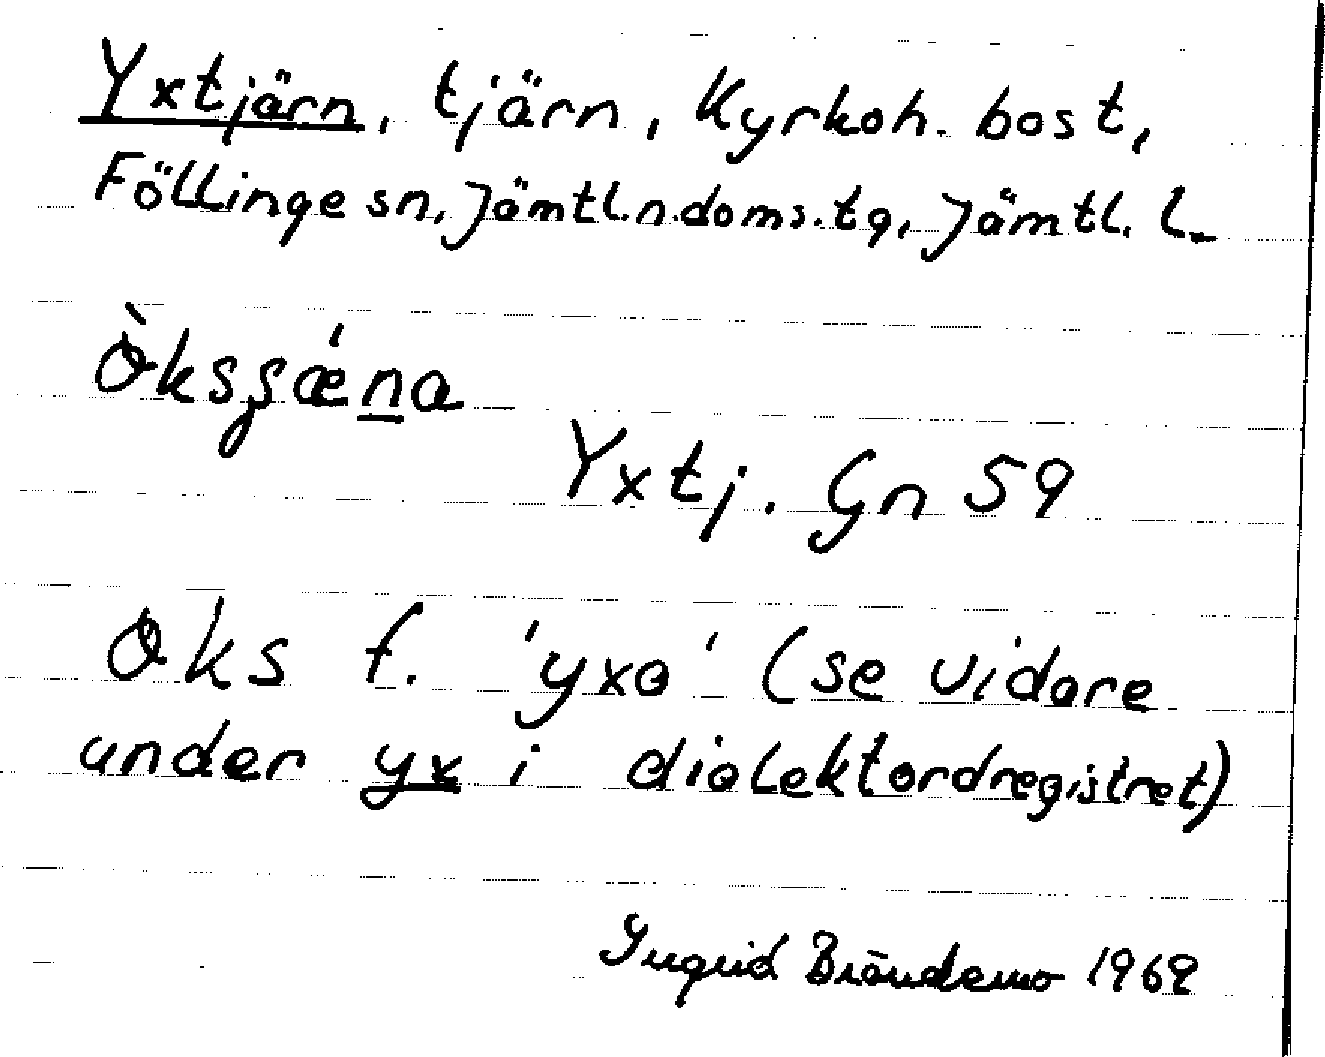 Yxtjärn, tjärn, Kyrkoh. bost,
Föllinge sn, Jämtl.n.doms.tg, Jämtl. l.
Yxtj. Gn 59
f. 'yxa' (se vidare
under yx i dialektordregistret)
Ingrid Brändemo 1969